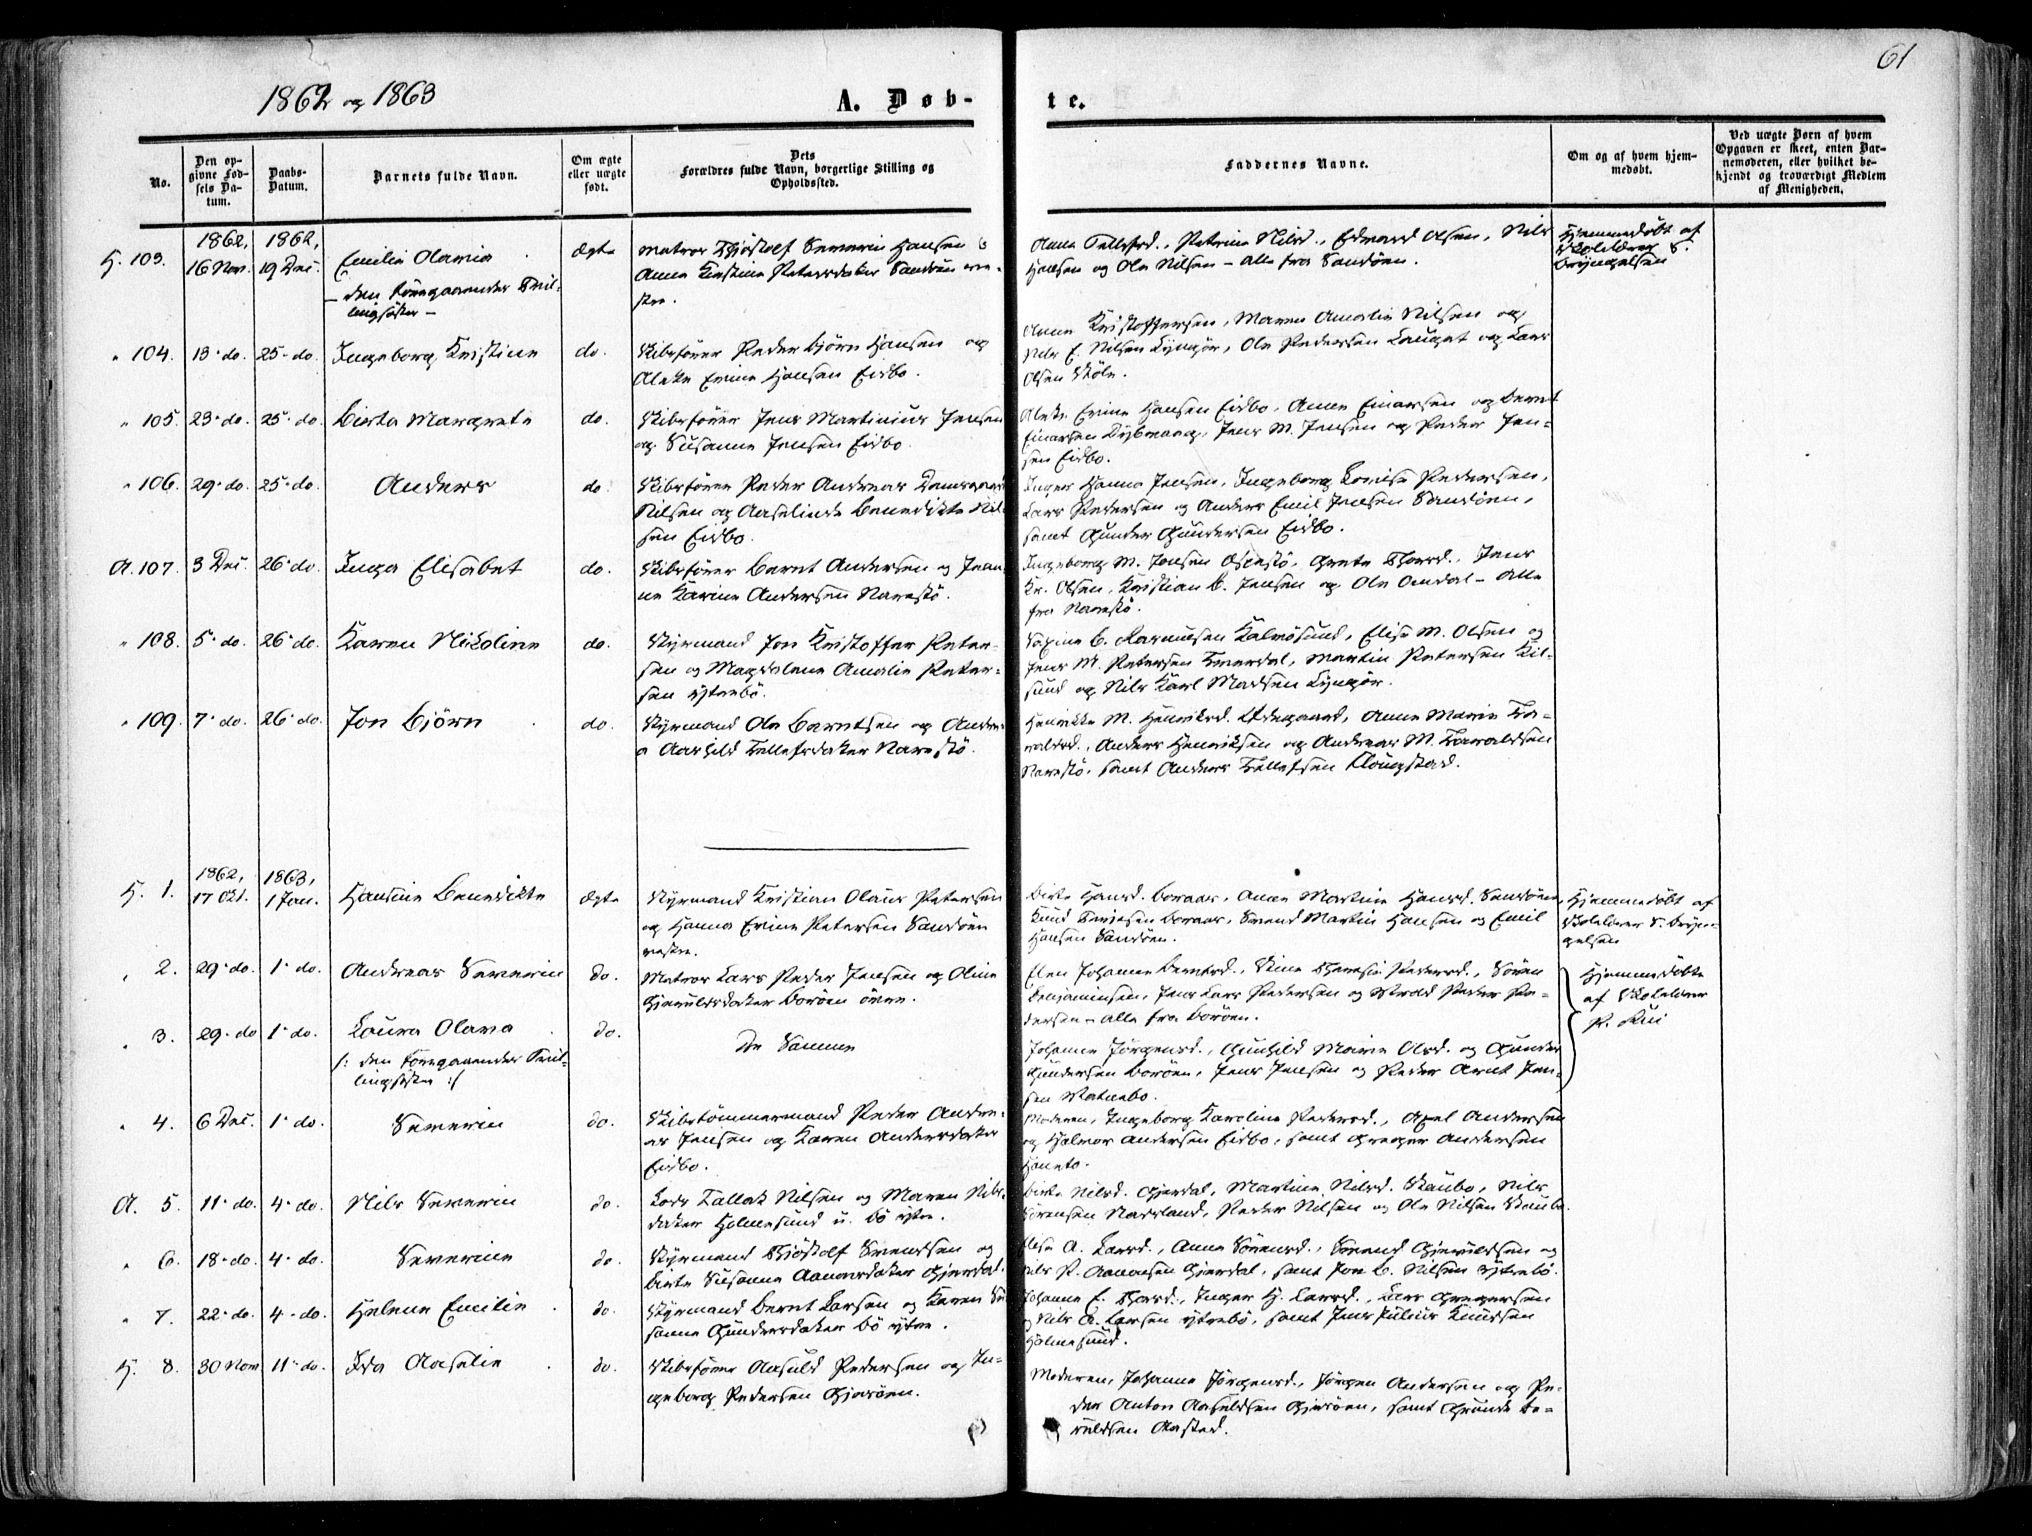 61
1862 og 1863
A. Døb-
te.
No.
Den op-
givne Fød-
sels Da-
tum.
Daabs-
Datum.
Barnets fulde Navn.
Om ægte
eller uægte
født.
Dets
Forældres fulde Navn, borgerlige Stilling og
Opholdssted.
Faddernes Navne.
Om og af hvem hjem-
medøbt.
Ved uægte Børn af hvem
Opgaven er skeet, enten Bar-
nemoderen, eller hvilket be-
kjendt og troværdigt Medlem
af Menigheden.
1862, 1862,
H. 103. 16 Nov. 19 Dec. Emilie Olavia ægte Matros Thjøstolf Severin Hansen &
Anna Kirstine Petersdatter Sandøen ves-
tre.
- den foregaaendes Tvil-
lingsøster -
Anna Tellefsd., Petrine Nilsd., Edvard Olsen, Nils
Hansen og Ole Nilsen - alle fra Sandøen.
Hjemmedøbt af
Skolelærer S.
Bryngelsen
" 104. 13 " do. 25 " do. Ingeborg Kristine do. Skibsfører Peder Bjørn Hansen og
Aleke Evine Hansen Eidbo.
Anne Kristoffersen, Maren Amalie Nilsen og
Nils E. Nilsen Lyngør, Ole Pedersen Lauget og Lars
Olsen Skøle.
" 105. 23 " do. 25 " do. Birta Margrete do. Skibsfører Jens Martinius Jensen
og Susanne Jensen Eidbo.
Aleke Evine Hansen Eidbo, Anne Einarsen og Bernt
Einarsen Dybvaag, Jens M. Jensen og Peder Jen-
sen Eidbo.
" 106. 29 " do. 25 " do. Anders do. Skibsfører Peder Andreas Damsgaard
Nilsen og Aaselinde Benedikte Nil-
sen Eidbo.
Inger Hanna Jensen, Ingeborg Lovise Pedersen,
Lars Pedersen og Anders Emil Jensen Sandøen,
samt Gunder Gundersen Eidbo.
A. 107. 3 Dec. 26 " do. Inga Elisabet do. Skibsfører Bernt Andersen og Jean-
ne Karine Andersen Narestø.
Ingeborg M. Jensen Ospestø, Grete Thorsd., Jens
Kr. Olsen, Kristian B. Jensen og Ole Omdal - alle
fra Narestø.
" 108. 5 " do. 26 " do. Karen Nikoline do. Styrmand Jon Kristoffer Peter-
sen og Magdalene Amalie Peter-
sen ytrebø.
B. Rasmussen Kalvøsund, Elise M. Olsen og
Jens M. Petersen Tverdal, Martin Petersen Kil-
sund og Nils Karl Madsen Lyngør.
" 109. 7 " do. 26 " do. Jon Bjørn do. Styrmand Ole Berntsen og Andre-
a Aashild Tellefsdatter Narestø.
Henrikke M. Henriksd. Ødegaard, Anne Marie Ta-
raldsd., Anders Henriksen og Andreas M. Taraldsen
Narestø, samt Anders Tellefsen Flougstad.
1862, 1863,
H. 1. 17 Okt. 1 Jan. Hansine Benedikte ægte Styrmand Kristian Olaus Petersen
og Hanna Evine Petersen Sandøen
vestre.
Birte Hansd. Boraas, Anne Martine Hansd. Sandøen,
Knud Terjesen Boraas, Svend Martin Hansen og Emil
Hansen Sandøen.
Hjemmedøbt af
Skolelærer S. Bryn-
gelsen
" 2. 29 " do. 1 " do. Andreas Severin do. Matros Lars Peder Jensen og Oline
Gjeruldsdatter Borøen øvre.
Elen Johanne Berntsd., Stine Therese Pedersd., Søren
Benjaminsen, Jens Lars Pedersen og Peder Pe-
dersen - alle fra Borøen.
Hjemmedøbte
af Skolelærer
P.
" 3. 29 " do 1 " do. Laura Olava do. De Samme
/: den foregaaendes Tvil-
lingsøster :/
Johanne Jørgensd., Gunhild Marie Olsd. og Gunder
Gundersen Borøen, Jens Jensen og Peder Arnt Jen-
sen Vatnebo.
" 4. 6 Dec. 1 " do. Severin do. Skibstømmermand Peder Andre-
as Jensen og Karen Andersdatter
Eidbo.
Moderen, Ingeborg Karoline Pedersd., Axel Andersen
og Halvor Andersen Eidbo, samt Greger Andersen
Haneto.
A. 5. 11 " do. 4 " do. Nils Severin do. Lods Tallak Nilsen og Maren Nils-
datter Holmesund u. Bø ytre.
Birte Nilsd. Gjerdal, Martine Nilsd. Staubo, Nils
Sørensen Narsland, Peder Nilsen og Ole Nilsen Staubo.
" 6. 18 " do. 4 " do. Severine do. Styrmand Thjøstolf Svendsen og
Birte Susanne Aanonsdatter Gjerdal.
Elese A. Larsd., Anna Sørensd., Svend Gjeruldsen og
Nils P. Aanonsen Gjerdal, samt Jon B. Nilsen Ytrebø.
" 7. 22 " do. 4 " do. Helene Emilie do. Styrmand Bernt Larsen og Karen Su-
sanne Gundersdatter Bø ytre.
Johanne E. Thorsd., Inger H. Larsd., Lars Gregersen
og Nils A. Larsen ytrebø, samt Jens Julius Knudsen
Holmesund.
H. 8. 30 Nov. 11 " do. Ida Aaselie do. Skibsfører Aasuld Pedersen og In-
geborg Pedersen Gjerøen.
Moderen, Johanne Jørgensd., Jørgen Andersen og Pe-
der Anton Aasuldsen Gjerøen, samt Grunde Te-
ruldsen Aasted.